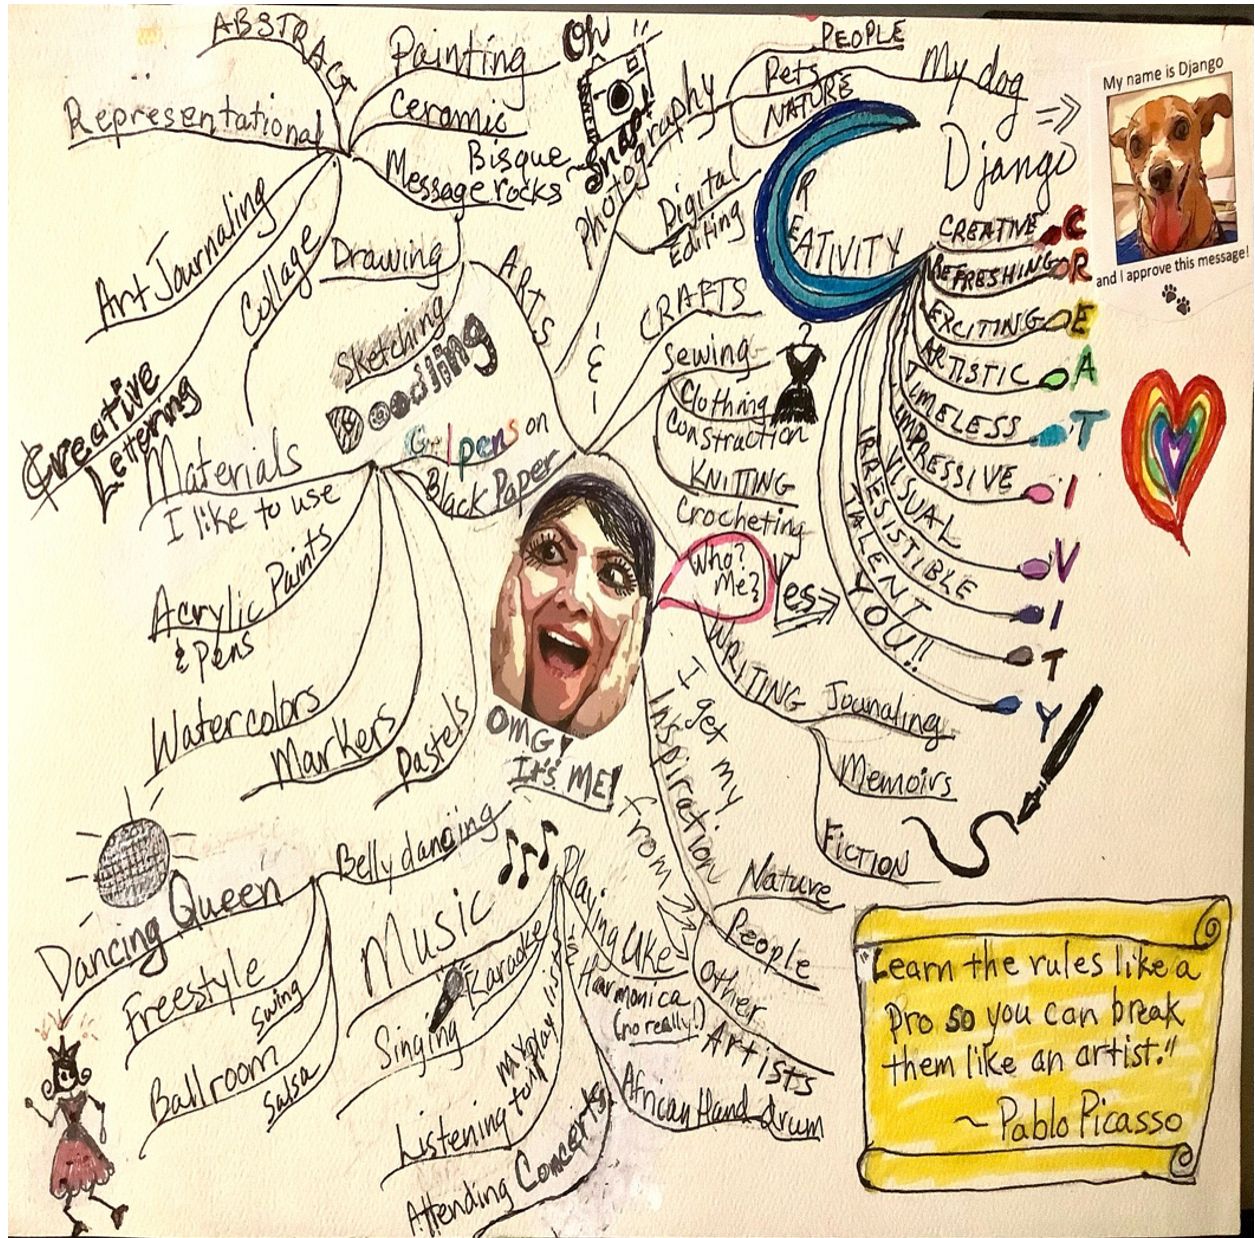 ABSTRACT
Representational
Painting
Ceramic
Bisque
Message rocks
Art Journaling
Collage
Creative
Lettering
Drawing
Sketching
Doodling
Gel pens on
Black Paper
ARTS
&
CRAFTS
Oh
Snap!
Photography
PEOPLE
Pets
NATURE
My dog
Django
My name is Django
and I approve this message!
Digital
Editing
CREATIVITY
CREATIVE C
REFRESHING R
EXCITING E
ARTISTIC A
TIMELESS T
IMPRESSIVE I
VISUAL V
IRRESISTIBLE I
TALENT T
YOU!! Y
Sewing
Clothing
Construction
KNITTING
Crocheting
Who?
Me?
Yes
WRITING
Journaling
Memoirs
FICTION
Materials
I like to use
Acrylic Paints
& Pens
Watercolors
Markers
Pastels
OMG!
It's ME!
I get my
Inspiration
from
Nature
People
Other
Artists
Dancing Queen
Belly dancing
Freestyle
Swing
Ballroom
Salsa
Music
Karaoke
Singing
Listening to my playlist
Attending Concerts
Playing Uke
Harmonica
(no really!)
African Hand drum
"Learn the rules like a
pro so you can break
them like an artist."
~ Pablo Picasso